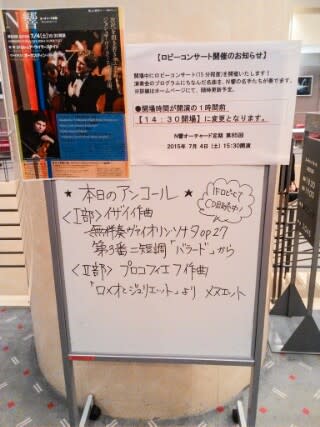 N響
7/4(土)
【ロビーコンサート開催のお知らせ】
開場中にロビーコンサート(15分程度)を開催いたします!
演奏会のプログラムにちなんだ名曲を、N響の名手たちが奏でます。
※詳細はホームページにて、随時更新予定。
●開場時間が開演の1時間前
【14:30開場】に変更となります。
N響オーチャード定期 第85回
2015年 7月 4日(土) 15:30開演
★ 本日のアンコール ★
1Fロビーにて
CD発売中!
<Ⅰ部> イザイ作曲
無伴奏ヴァイオリン・ソナタ op27
第3番 ニ短調「バラード」から
<Ⅱ部> プロコフィエフ作曲
「ロメオとジュリエット」より メヌエット